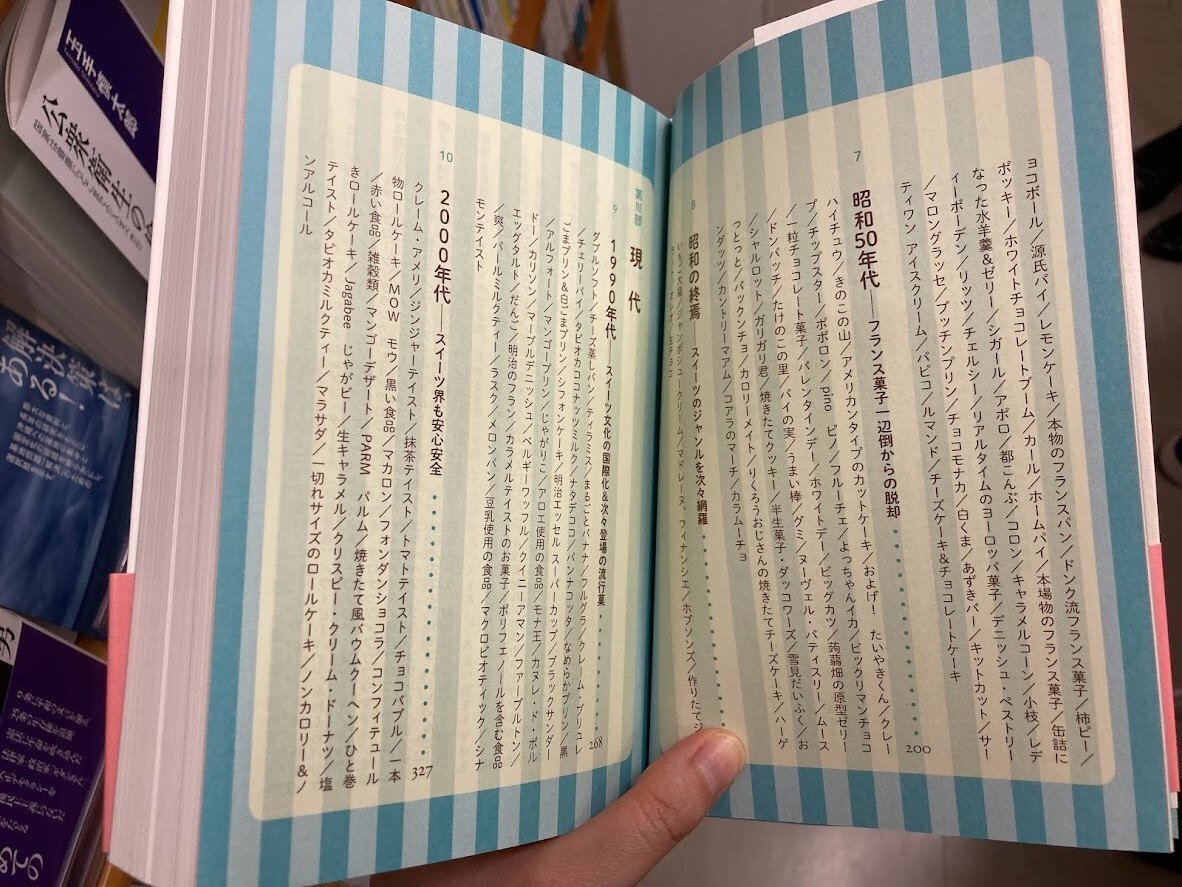 ヨコボール／源氏パイ／レモンケーキ／本物のフランスパン／ドンク流フランス菓子／柿ピー／
ポッキー／ホワイトチョコレートブーム／カール／ホームパイ／本場物のフランス菓子／缶詰に
なった水羊羹&ゼリー／シガール／アポロ／都こんぶ／コロン／キャラメルコーン／小枝／レデ
ィーボーデン／リッツ／チェルシー／リアルタイムのヨーロッパ菓子／デニッシュ・ペストリー
／マロングラッセ／プッチンプリン／チョコモナカ／白くま／あずきバー／キットカット／サー
ティワン アイスクリーム／パピコ／ルマンド／チーズケーキ&チョコレートケーキ
7 昭和50年代――フランス菓子一辺倒からの脱却 200
ハイチュウ／きのこの山／アメリカンタイプのカットケーキ／およげ！ たいやきくん／クレー
プ／チップスター／ポポロン／pino ピノ／フルーチェ／よっちゃんイカ／ビックリマンチョコ
／一粒チョコレート菓子／バレンタインデー／ホワイトデー／ビッグカツ／蒟蒻畑の原型ゼリー
／ドンパッチ／たけのこの里／パイの実／うまい棒／グミ／ヌーヴェル・パティスリー／ムース
／シャルロット／ガリガリ君／焼きたてクッキー／半生菓子・ダッコワーズ／雪見だいふく／お
っとっと／パックンチョ／カロリーメイト／りくろうおじさんの焼きたてチーズケーキ／ハーゲ
ンダッツ／カントリーマアム／コアラのマーチ／カラムーチョ
8 昭和の終焉――スイーツのジャンルを次々網羅
いちご大福／ジャンボシュークリーム／マドレーヌ、フィナンシェ／ホブソンズ／作りたてジ
生チョコ
第III部 現代
9 1990年代――スイーツ文化の国際化&次々登場の流行菓 268
ダブルソフト／チーズ蒸しパン／ティラミス／まるごとバナナ／フルグラ／クレーム・ブリュレ
／チェリーパイ／タピオカココナッツミルク／ナタデココ／パンナコッタ／なめらかプリン／黒
ごまプリン&白ごまプリン／シフォンケーキ／明治エッセル スーパーカップ／ブラックサンダー
／アルフォート／マンゴープリン／じゃがりこ／アロエ使用の食品／モナ王／カヌレ・ド・ボル
ドー／カリソン／マーブルデニッシュ／ベルギーワッフル／クイニーアマン／ファーブルトン／
エッグタルト／だんご／明治のフラン／カラメルテイストのお菓子／ポリフェノールを含む食品
／爽／パールミルクティー／ラスク／メロンパン／豆乳使用の食品／マクロビオティック／シナ
モンテイスト
10 2000年代――スイーツ界も安心安全 327
クレーム・アメリ／ジンジャーテイスト／抹茶テイスト／トマトテイスト／チョコバブル／一本
物ロールケーキ／MOW モウ／黒い食品／マカロン／フォンダンショコラ／コンフィテュール
／赤い食品／雑穀類／マンゴーデザート／PARM パルム／焼きたて風バウムクーヘン／ひと巻
きロールケーキ／Jagabee じゃがビー／生キャラメル／クリスピー・クリーム・ドーナツ／塩
テイスト／タピオカミルクティー／マラサダ／一切れサイズのロールケーキ／ノンカロリー&ノ
ンアルコール
公衆衛生の
解決策は、
ある！